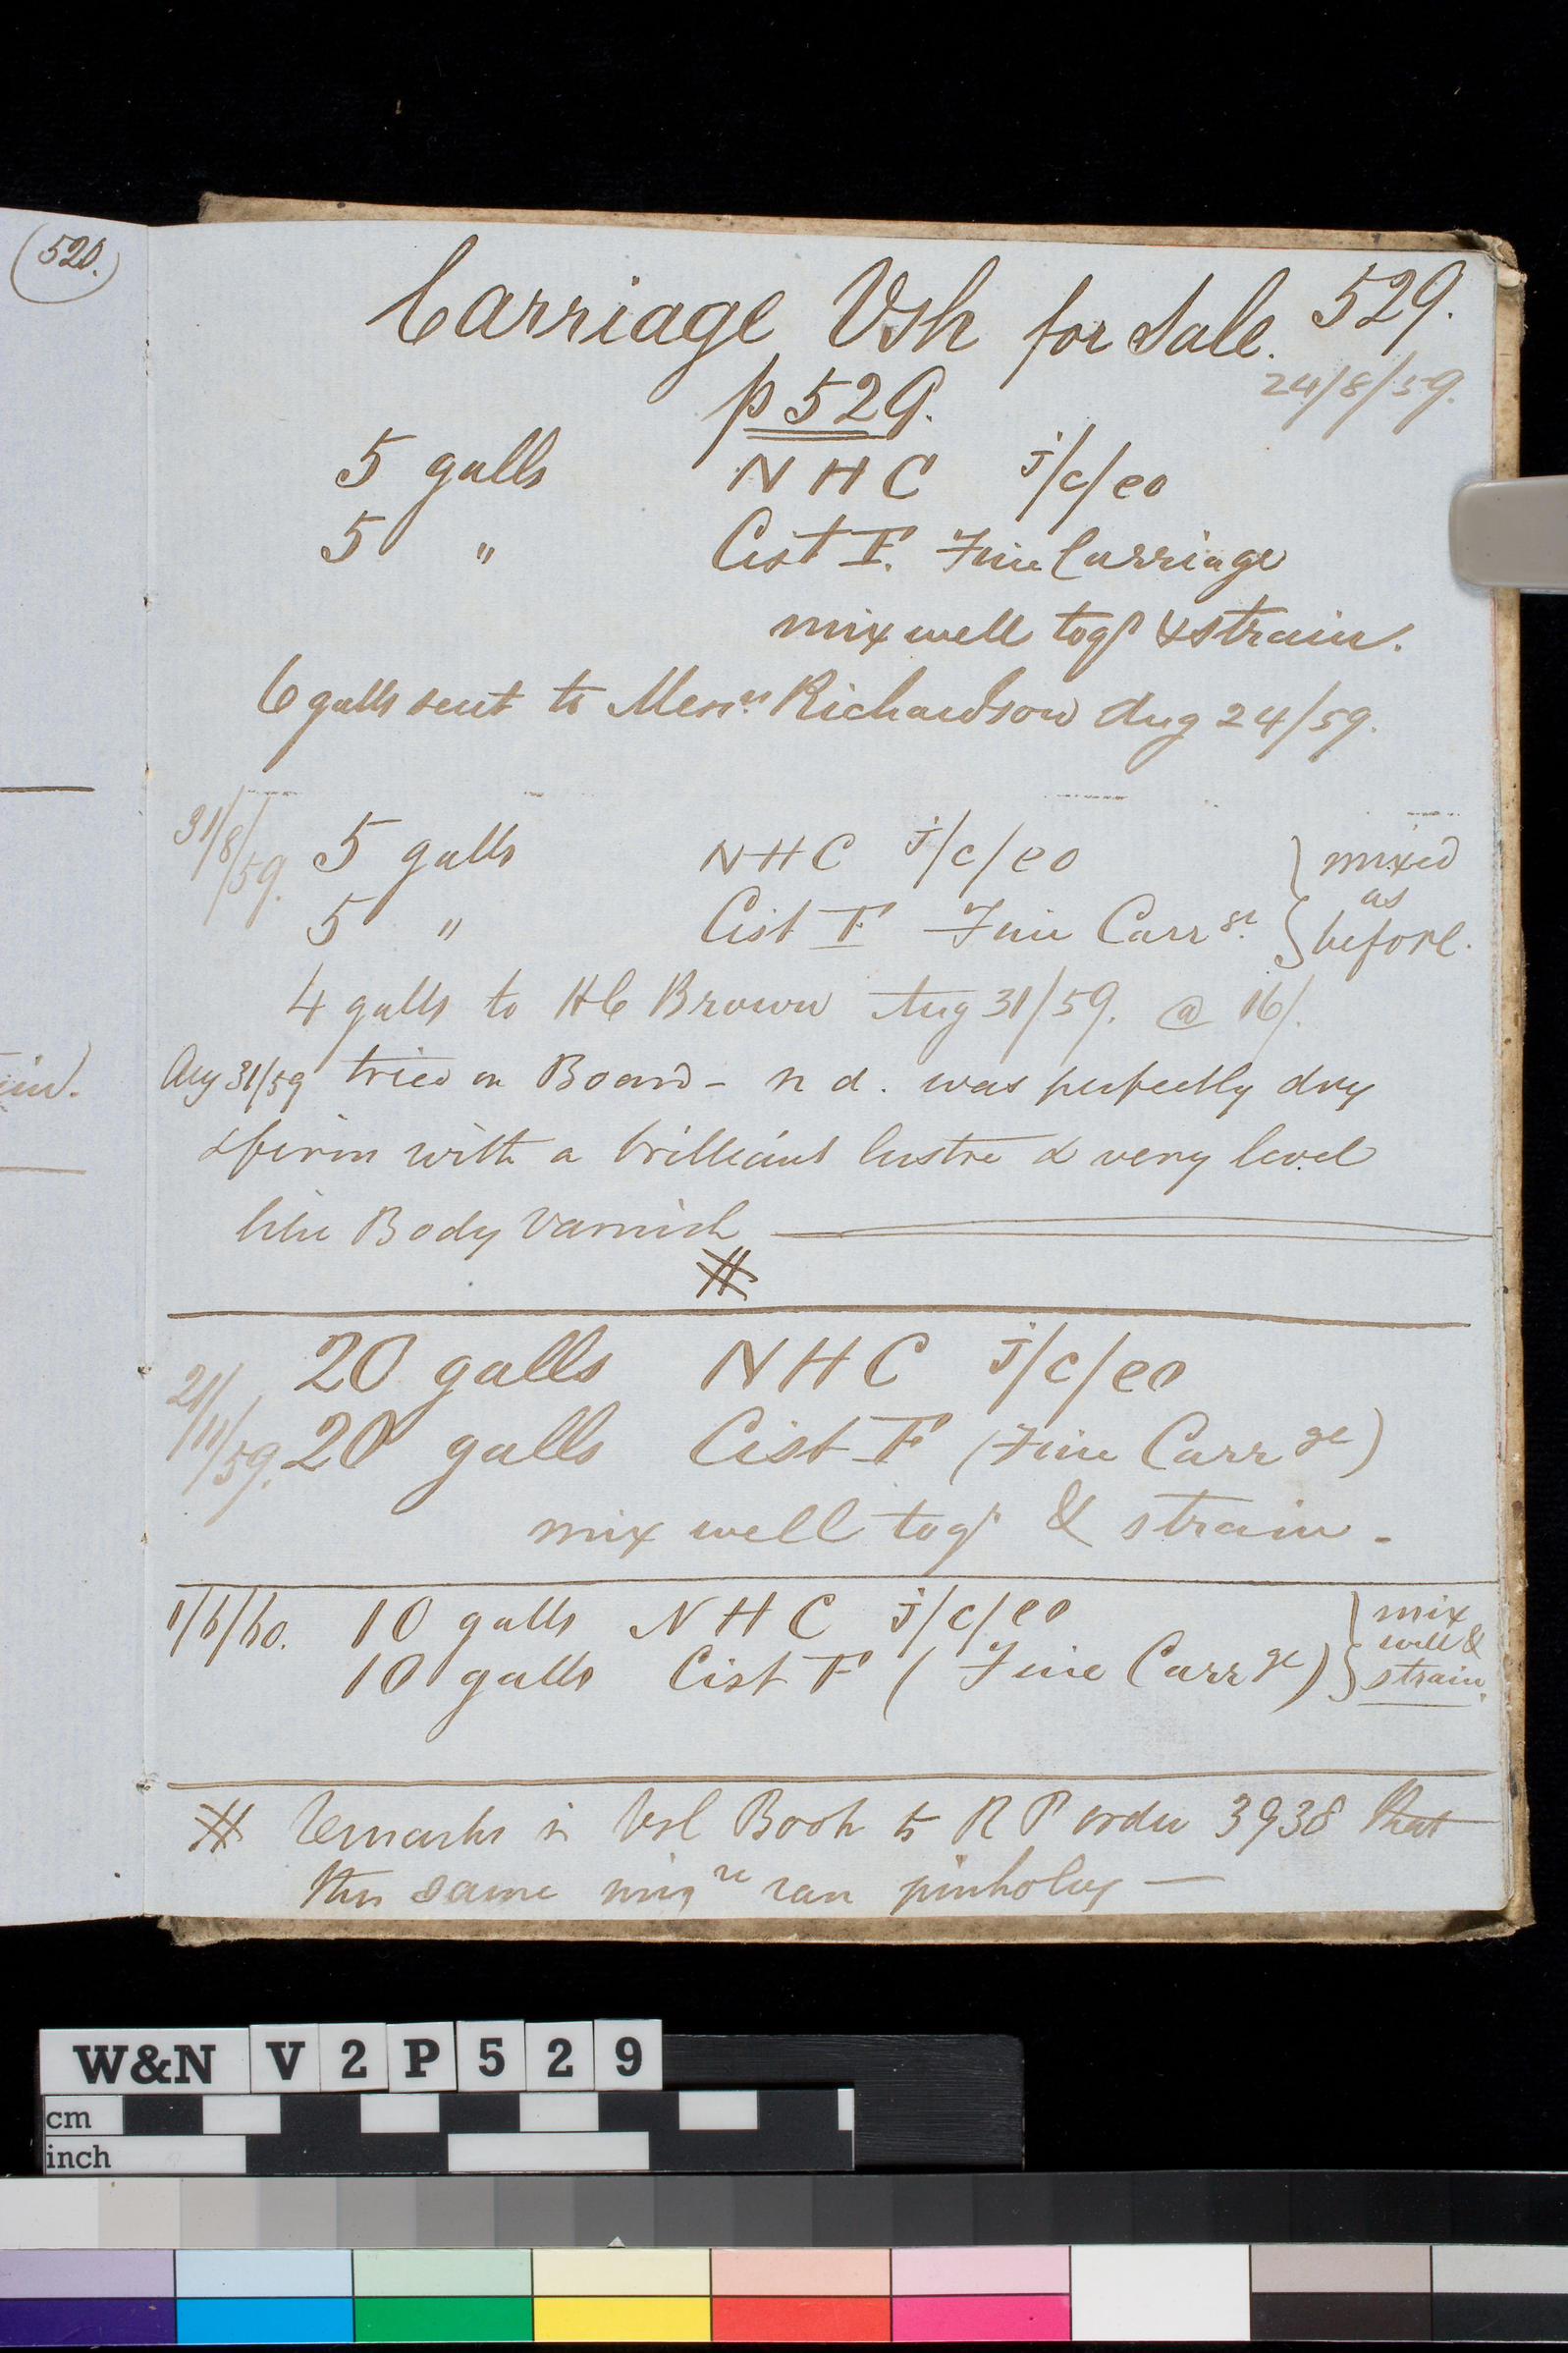 (528.)
Carriage Vsh for Sale. 529.
24/8/59.
p 529.
5 galls NHC j/c/eo
5 " Cist F. Fine Carriage
mix well togr & strain.
6 galls sent to Messrs Richardson Aug 24/59.
31/8/59. 5 galls NHC j/c/eo } mixed
5 " Cist F Fine Carrge. as before.
4 galls to HC Brown Aug 31/59. @ 16/.
Aug 31/59 tried on Board - n d. was perfectly dry
& firm with a brilliant lustre & very level
like Body Varnish
#
21/11/59. 20 galls NHC j/c/eo
20 galls Cist F (Fine Carrge)
mix well togr & strain -
1/6/60. 10 galls NHC j/c/eo } mix well &
10 galls Cist F (Fine Carrge) strain.
# Remarks in Book to R P order 3938 that
this same ran pinholey —
W&N V2P529
cm
inch